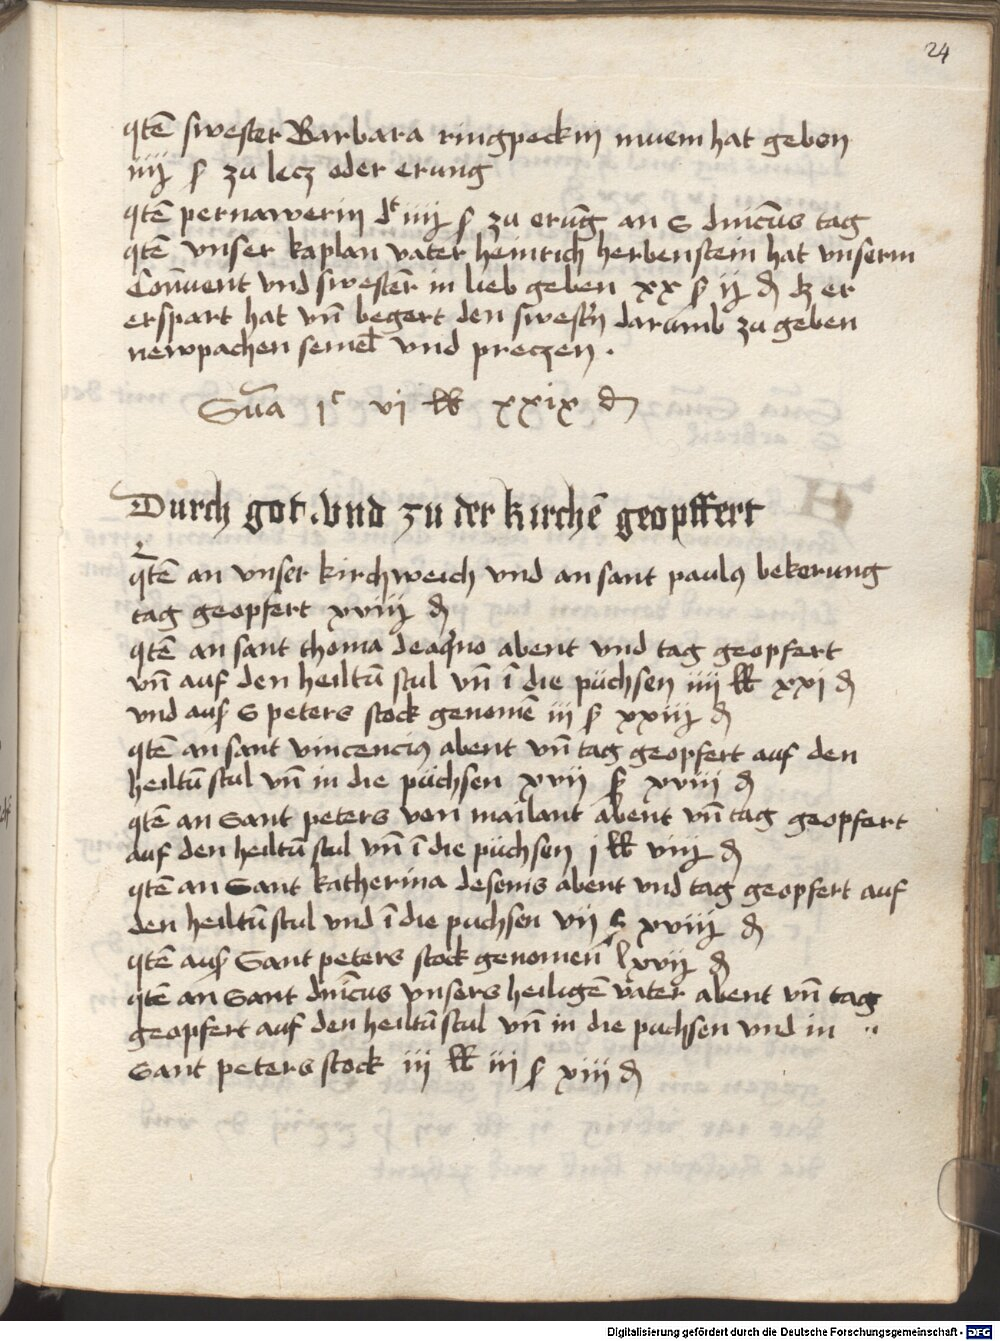 24
Itē swester Barbara ringpeckin muem hat geben
iiij ß zu lecz oder erung
Itē pernawerin dt iiij ß zu erūg an S dnīcus tag
Itē vnser kaplan vater heinrich herbenstein hat vnserm
Conuent vnd swestēr in lieb geben xx ß ij d dz er
erspart hat vn̄ begert den swestn̄ darumb zu geben
newpachen semel vnd preczen .
Sūa jc vj lb xxix d
Durch got . vnd zu der kirchē geopffert
Itē an vnser kirchweich vnd an sant paulus bekerung
tag geopfert xviiij d
Itē an sant thoma deaquino abent vnd tag geopfert
vn̄ auf den heiltū stul vn̄ ī die püchsen iiij lb xxj d
vnd aus S peters stock genomē iij ß xxiij d
Itē an sant vincencius abent vn̄ tag geopfert auf den
heiltū stul vn̄ in die püchsen xvij ß xviii d
Itē an Sant peters von mailant abent vn̄ tag geopfert
auf den heiltū stul vn̄ ī die püchsen j lb viij d
Itē an Sant katherina desenis abent vnd tag geopfert auf
den heiltū stul vnd ī die puchsen vij ß xviiij d
Itē aus Sant peters stock genomen lxvij d
Itē an Sant dnīcus vnsers heiligē vater abent vn̄ tag
geopfert auf den heiltū stul vn̄ in die puchsen vnd in
Sant peters stock iij lb iij ß xiij d
Digitalisierung gefördert durch die Deutsche Forschungsgemeinschaft - DFG